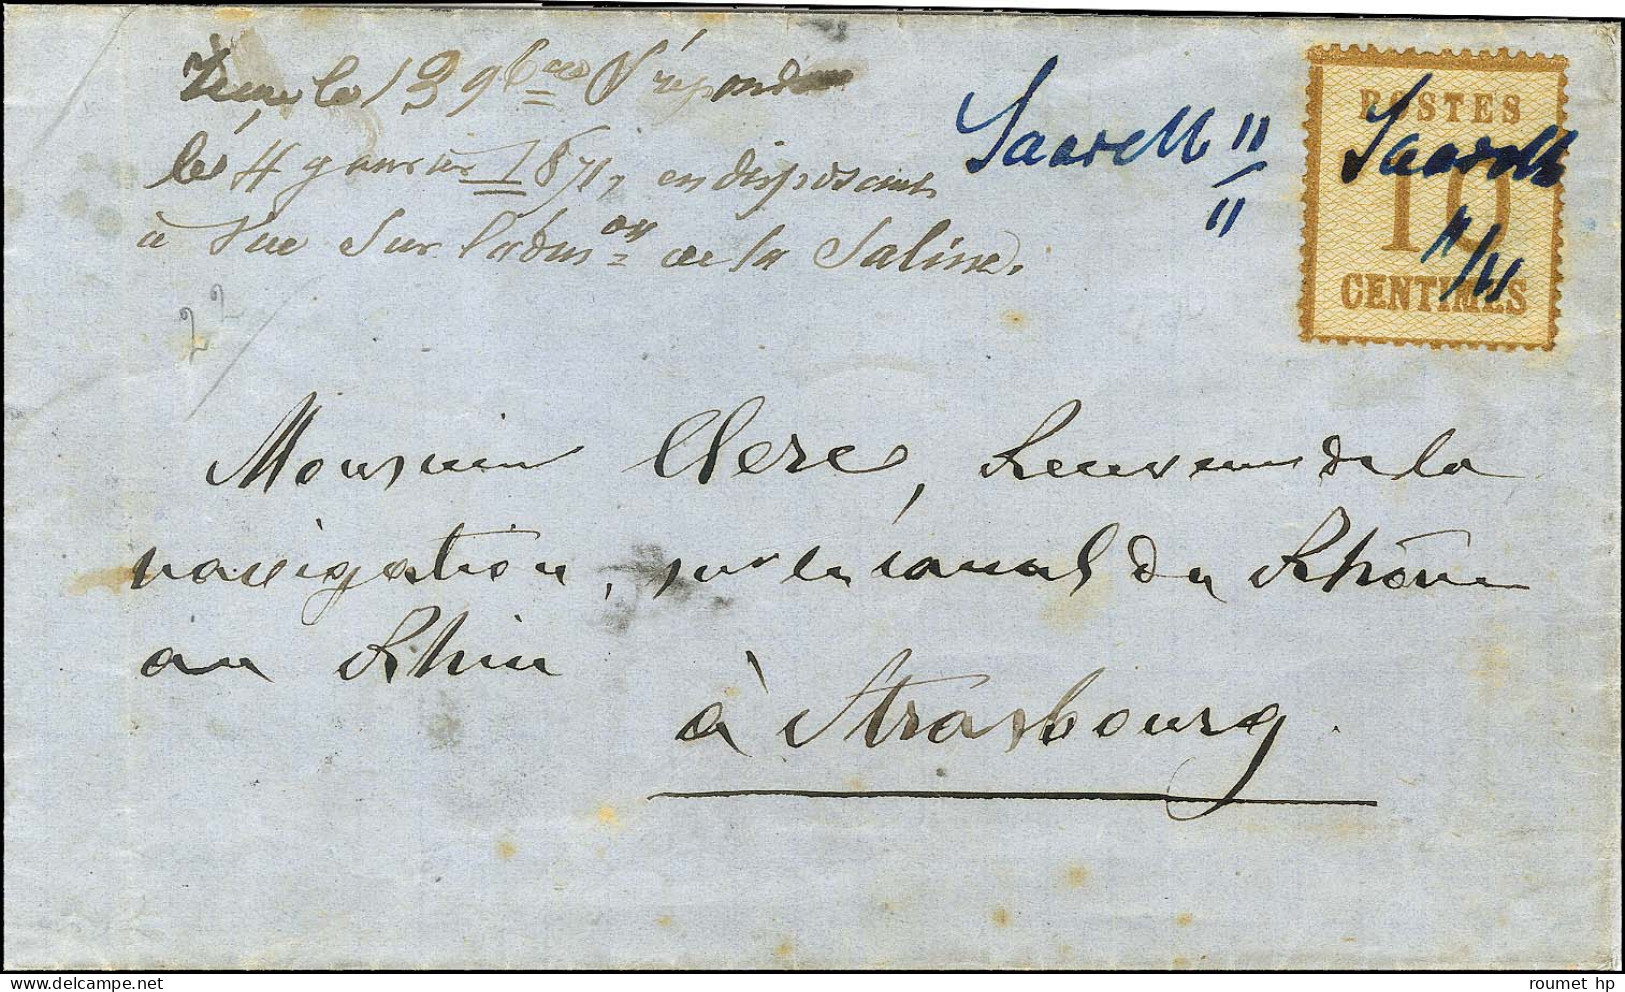 le 13 9bre
Saarell 11/11
POSTES
Saarell
10
11/11
CENTIMES
le 4 janvier 1871, en disposant
à vue sur l'adm.on de la Saline.
22
Monsieur Clerc, Receveur de la
navigation, sur le canal du Rhône
au Rhin
à Strasbourg.
roumet hp